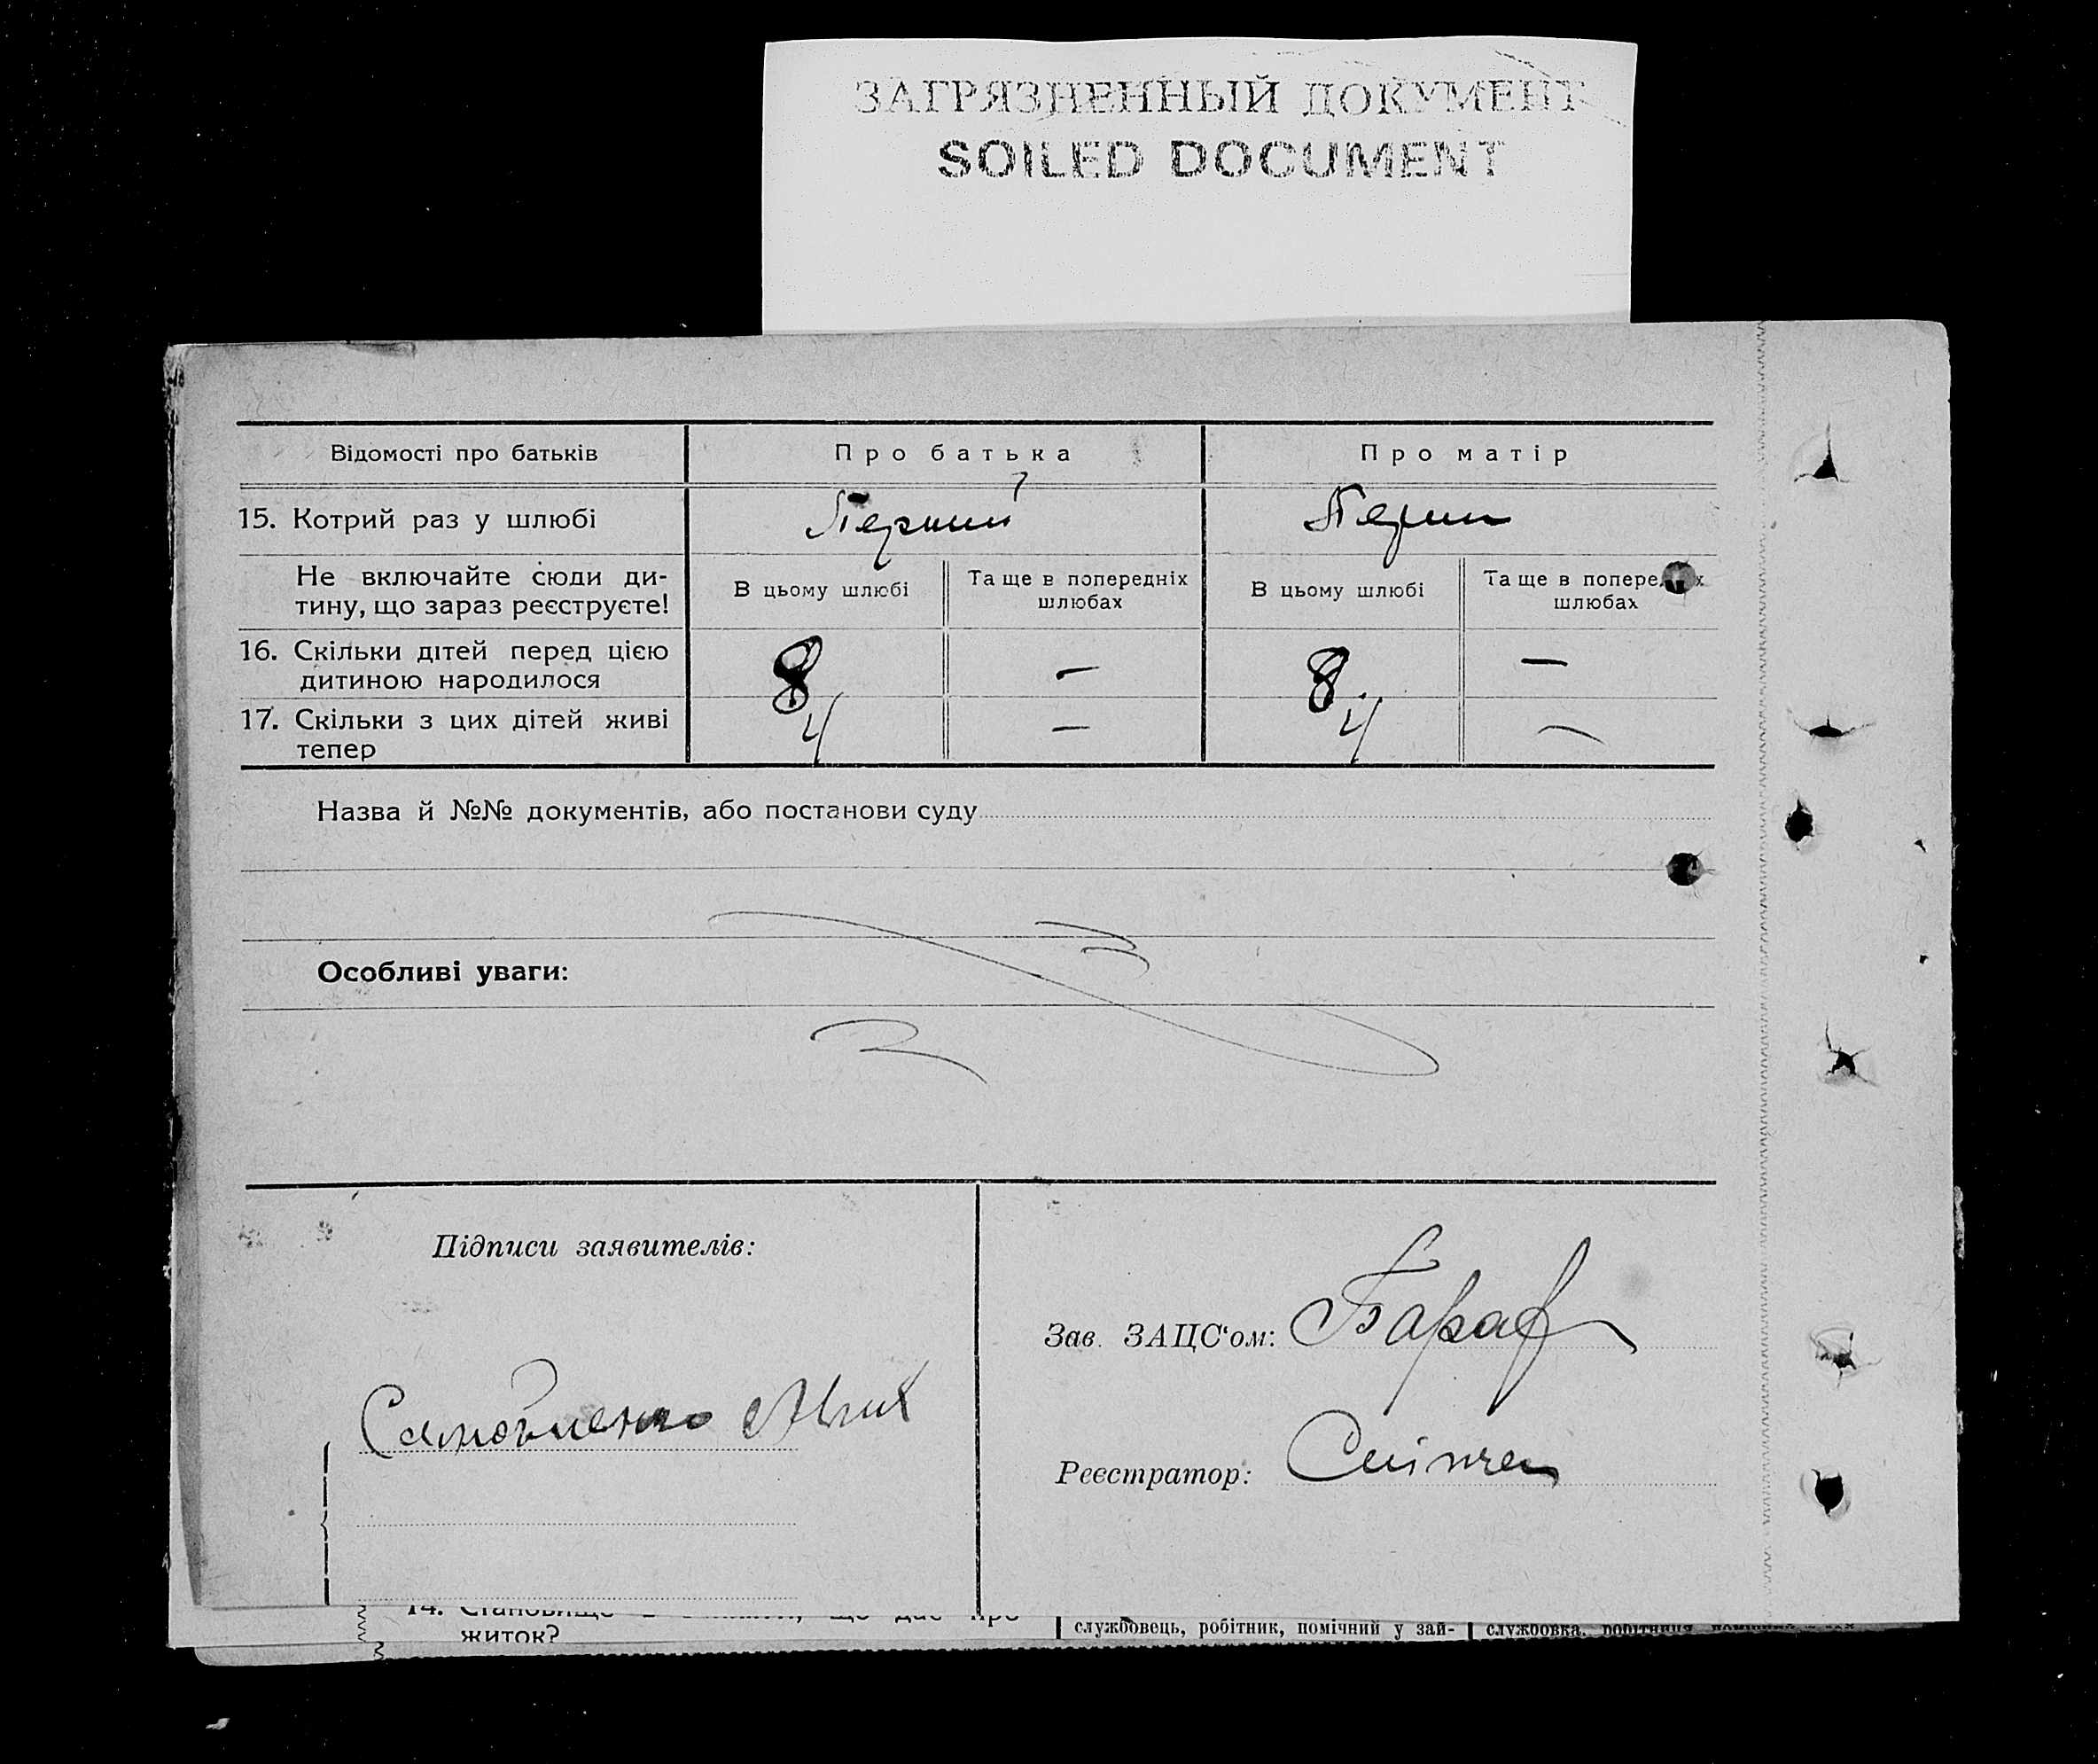 ЗАГРЯЗНЕННЫЙ ДОКУМЕНТ
SOILED DOCUMENT
Відомості про батьків Про батька Про матір
15. Котрий раз у шлюбі Перший
Не включайте сюди ди-
тину, що зараз реєструєте!
В цьому шлюбі Та ще в попередніх шлюбах В цьому шлюбі Та ще в шлюбах
16. Скільки дітей перед цією
дитиною народилося 8 – 8. –
17. Скільки з цих дітей живі
тепер 4 – 4 –
Назва й №№ документів, або постанови суду
Особливі уваги:
Підписи заявителів:
Зав. ЗАЦС‘ом:
Реєстратор:
14.
житок?
службовець, робітник, помічний у зай-
службовка,